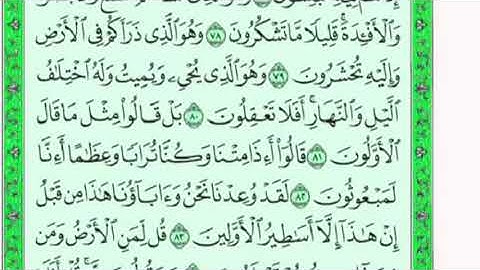 وَٱلْأَفْـِٔدَةَ ۚ قَلِيلًا مَّا تَشْكُرُونَ ٧٨ وَهُوَ ٱلَّذِى ذَرَأَكُمْ فِى ٱلْأَرْضِ
وَإِلَيْهِ تُحْشَرُونَ ٧٩ وَهُوَ ٱلَّذِى يُحْىِۦ وَيُمِيتُ وَلَهُ ٱخْتِلَٰفُ
ٱلَّيْلِ وَٱلنَّهَارِ ۚ أَفَلَا تَعْقِلُونَ ٨٠ بَلْ قَالُوا۟ مِثْلَ مَا قَالَ
ٱلْأَوَّلُونَ ٨١ قَالُوٓا۟ أَءِذَا مِتْنَا وَكُنَّا تُرَابًا وَعِظَٰمًا أَءِنَّا
لَمَبْعُوثُونَ ٨٢ لَقَدْ وُعِدْنَا نَحْنُ وَءَابَآؤُنَا هَٰذَا مِن قَبْلُ
إِنْ هَٰذَآ إِلَّآ أَسَٰطِيرُ ٱلْأَوَّلِينَ ٨٣ قُل لِّمَنِ ٱلْأَرْضُ وَمَن